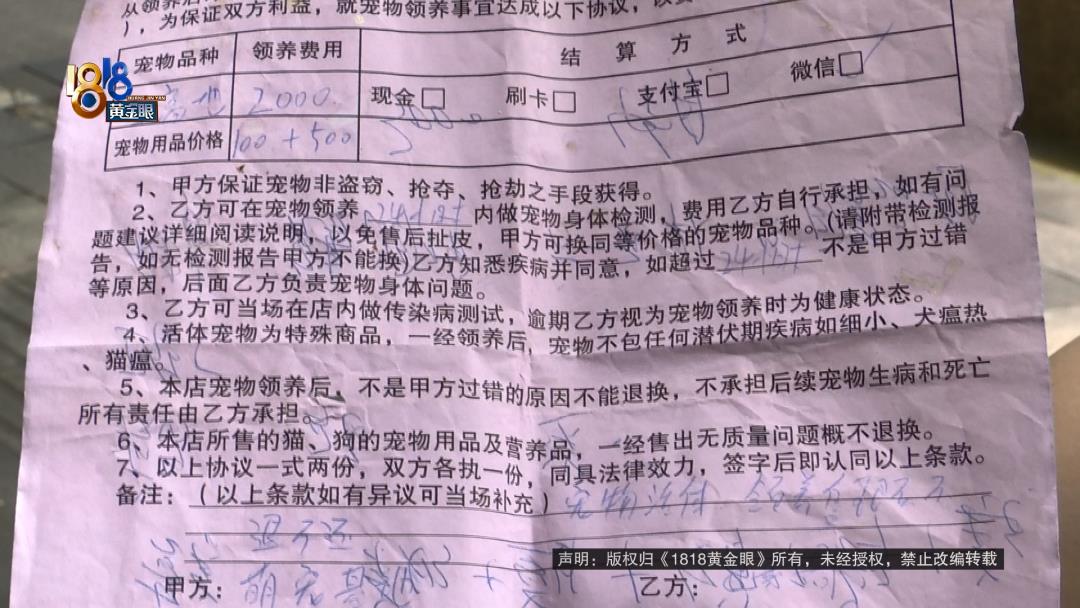 从领养
），为保证双方利益，就宠物领养事宜达成以下协议，
宠物品种 领养费用 结算方式
2000. 现金□ 刷卡□ 支付宝□ 微信□
宠物用品价格 100+500
1、甲方保证宠物非盗窃、抢夺、抢劫之手段获得。
2、乙方可在宠物领养 24小时 内做宠物身体检测，费用乙方自行承担，如有问
题建议详细阅读说明，以免售后扯皮，甲方可换同等价格的宠物品种。(请附带检测报
告，如无检测报告甲方不能换)乙方知悉疾病并同意，如超过 24小时 不是甲方过错
等原因，后面乙方负责宠物身体问题。
3、乙方可当场在店内做传染病测试，逾期乙方视为宠物领养时为健康状态。
4、活体宠物为特殊商品，一经领养后，宠物不包任何潜伏期疾病如细小、犬瘟热
、猫瘟。
5、本店宠物领养后，不是甲方过错的原因不能退换，不承担后续宠物生病和死亡
所有责任由乙方承担。
6、本店所售的猫、狗的宠物用品及营养品，一经售出无质量问题概不退换。
7、以上协议一式两份，双方各执一份，同具法律效力，签字后即认同以上条款。
备注：（以上条款如有异议可当场补充）宠物活体
退不还
甲方： 乙方：
1818
HUANG JIN YAN
黄金眼
声明：版权归《1818黄金眼》所有，未经授权，禁止改编转载